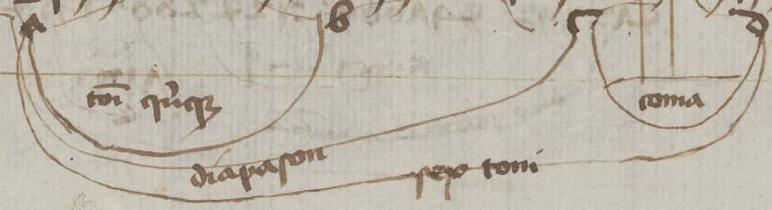 a b c d
toni quinque coma
diapason sex toni